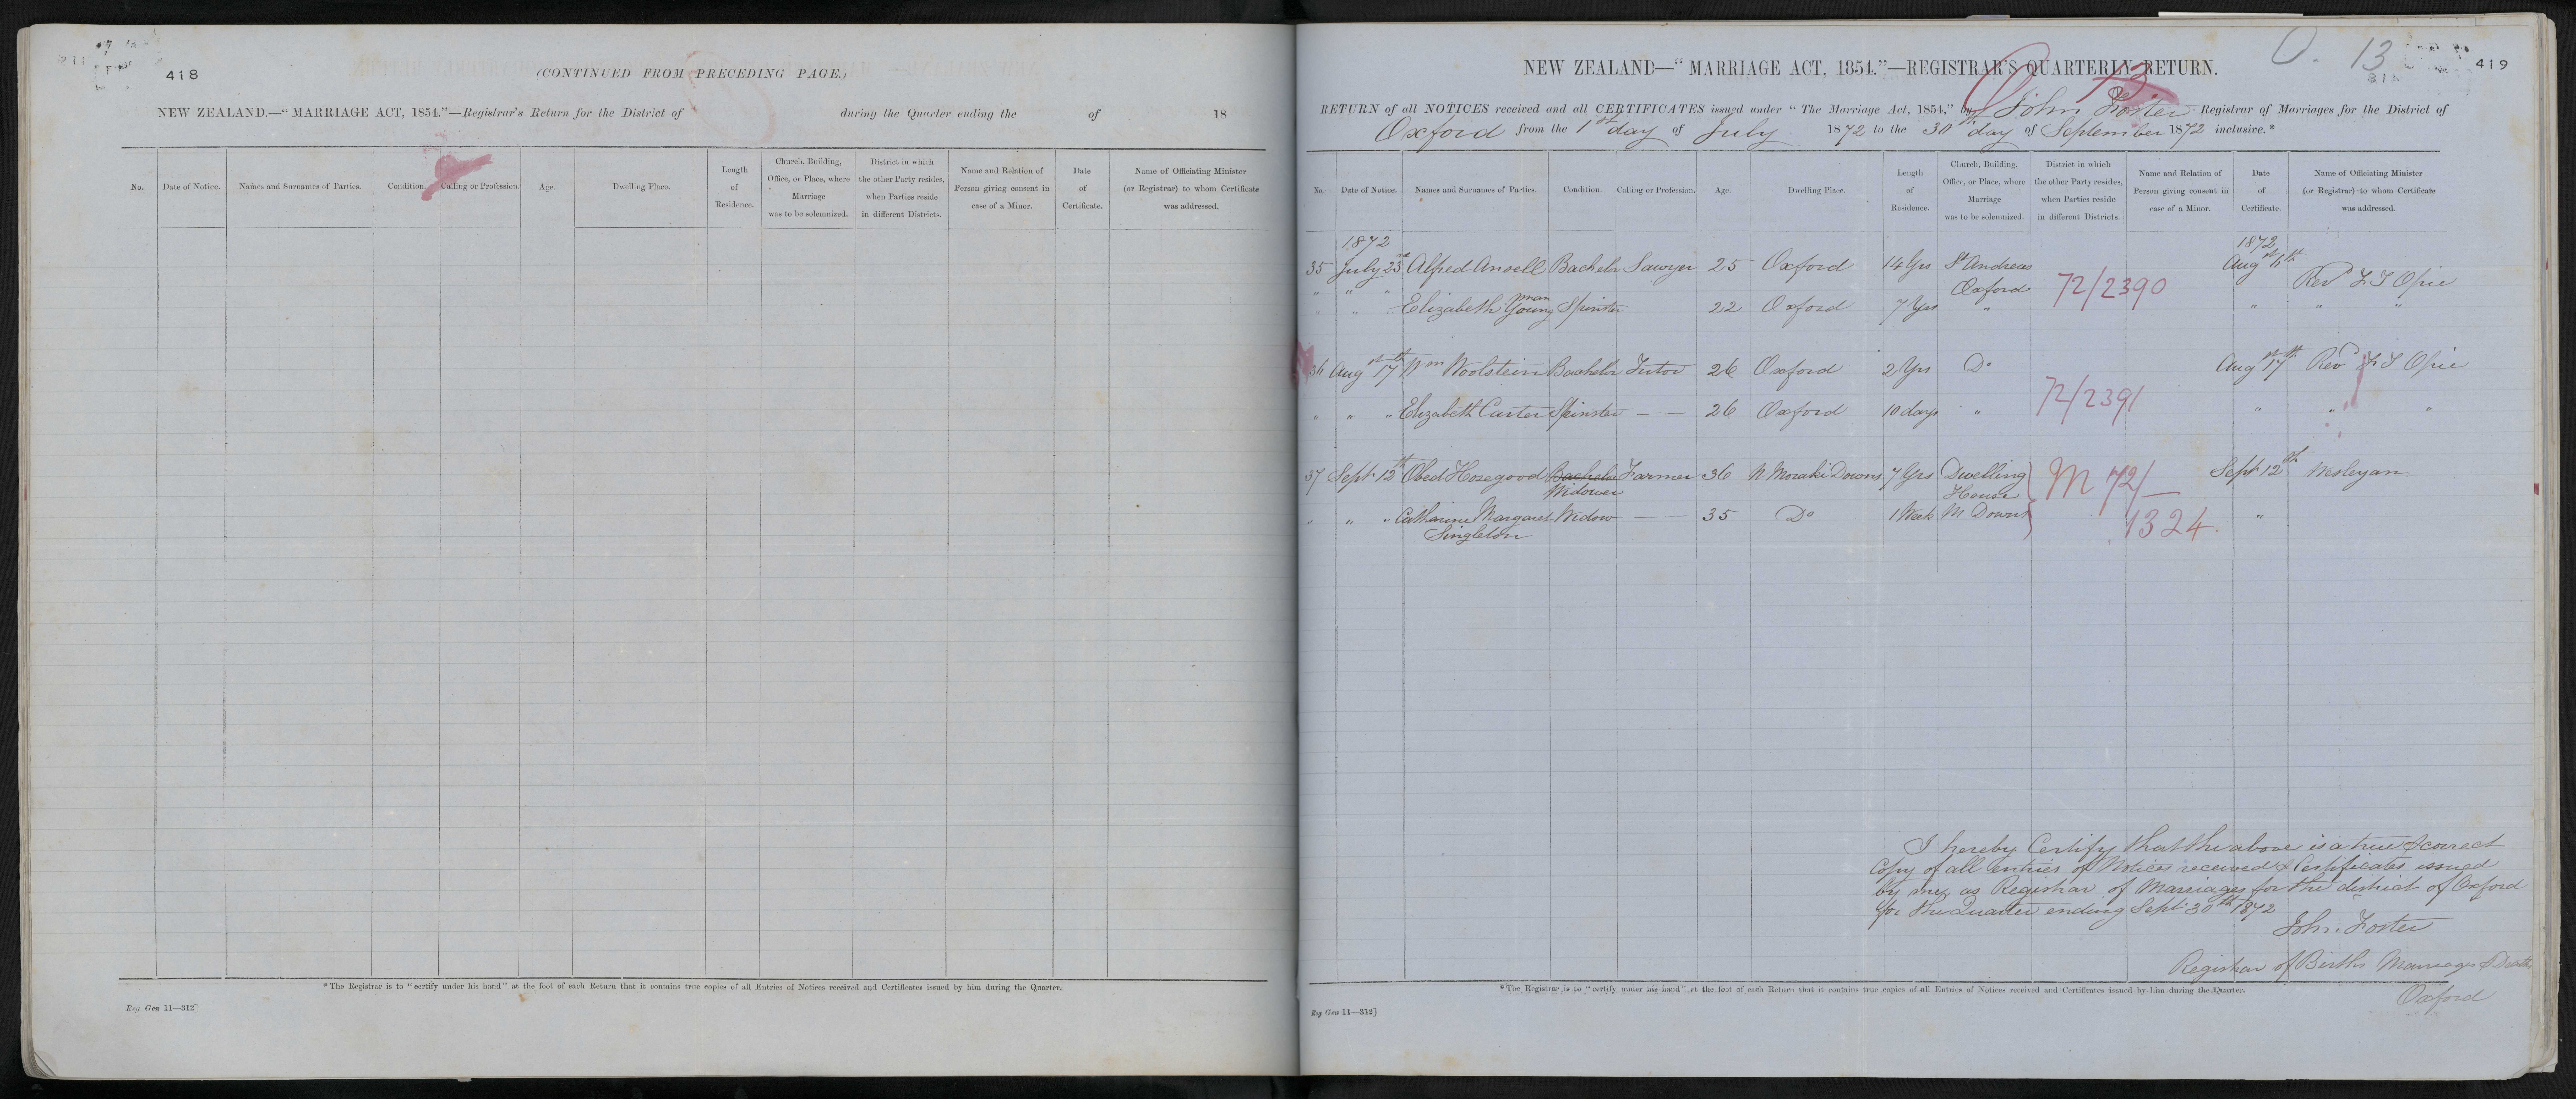 418
(CONTINUED FROM PRECEDING PAGE.)
NEW ZEALAND.—"MARRIAGE ACT, 1854."—Registrar's Return for the District of during the Quarter ending the of 18
No. Date of Notice. Names and Surnames of Parties. Condition. Calling or Profession. Age. Dwelling Place. Length of Residence. Church, Building, Office, or Place, where Marriage was to be solemnized. District in which the other Party resides, when Parties reside in different Districts. Name and Relation of Person giving consent in case of a Minor. Date of Certificate. Name of Officiating Minister (or Registrar) to whom Certificate was addressed.
* The Registrar is to "certify under his hand" at the foot of each Return that it contains true copies of all Entries of Notices received and Certificates issued by him during the Quarter.
Reg Gen 11—312]
O. 13
419
NEW ZEALAND—"MARRIAGE ACT, 1854."—REGISTRAR'S QUARTERLY RETURN.
RETURN of all NOTICES received and all CERTIFICATES issued under "The Marriage Act, 1854," by John Foster Registrar of Marriages for the District of
Oxford from the 1st day of July 1872 to the 30th day of September 1872 inclusive.*
No. Date of Notice. Names and Surnames of Parties. Condition. Calling or Profession. Age. Dwelling Place. Length of Residence. Church, Building, Office, or Place, where Marriage was to be solemnized. District in which the other Party resides, when Parties reside in different Districts. Name and Relation of Person giving consent in case of a Minor. Date of Certificate. Name of Officiating Minister (or Registrar) to whom Certificate was addressed.
1872 1872
35 July 23rd Alfred Ansell Bachelor Sawyer 25 Oxford 14 Yrs St Andrews Aug
Oxford 72/2390 Rev Opie
" " " Elizabeth Youngman Spinster 22 Oxford 7 Yrs " " " "
36 Aug 17th Wm Woolstein Bachelor Tutor 26 Oxford 2 Yrs Do Aug 17th Rev Opie
72/2391
" " " Elizabeth Carter Spinster — — 26 Oxford 10 days " " " "
37 Sept 12th Obed Hosegood Bachelor Farmer 36 N Moraki Downs 7 Yrs Dwelling M 72/— Sept 12th Wesleyan
Widower House
" " " Catharine Margaret Widow — — 35 Do 1 Week M Downs 1324 "
Singleton
I hereby Certify that the above is a true & correct
Copy of all entries of Notices received & Certificates issued
by me as Registrar of Marriages for the district of Oxford
for the Quarter ending Sept 30th 1872
John Foster
Registrar of Births Marriages & Deaths
Oxford
* The Registrar is to "certify under his hand" at the foot of each Return that it contains true copies of all Entries of Notices received and Certificates issued by him during the Quarter.
Reg Gen 11—312]